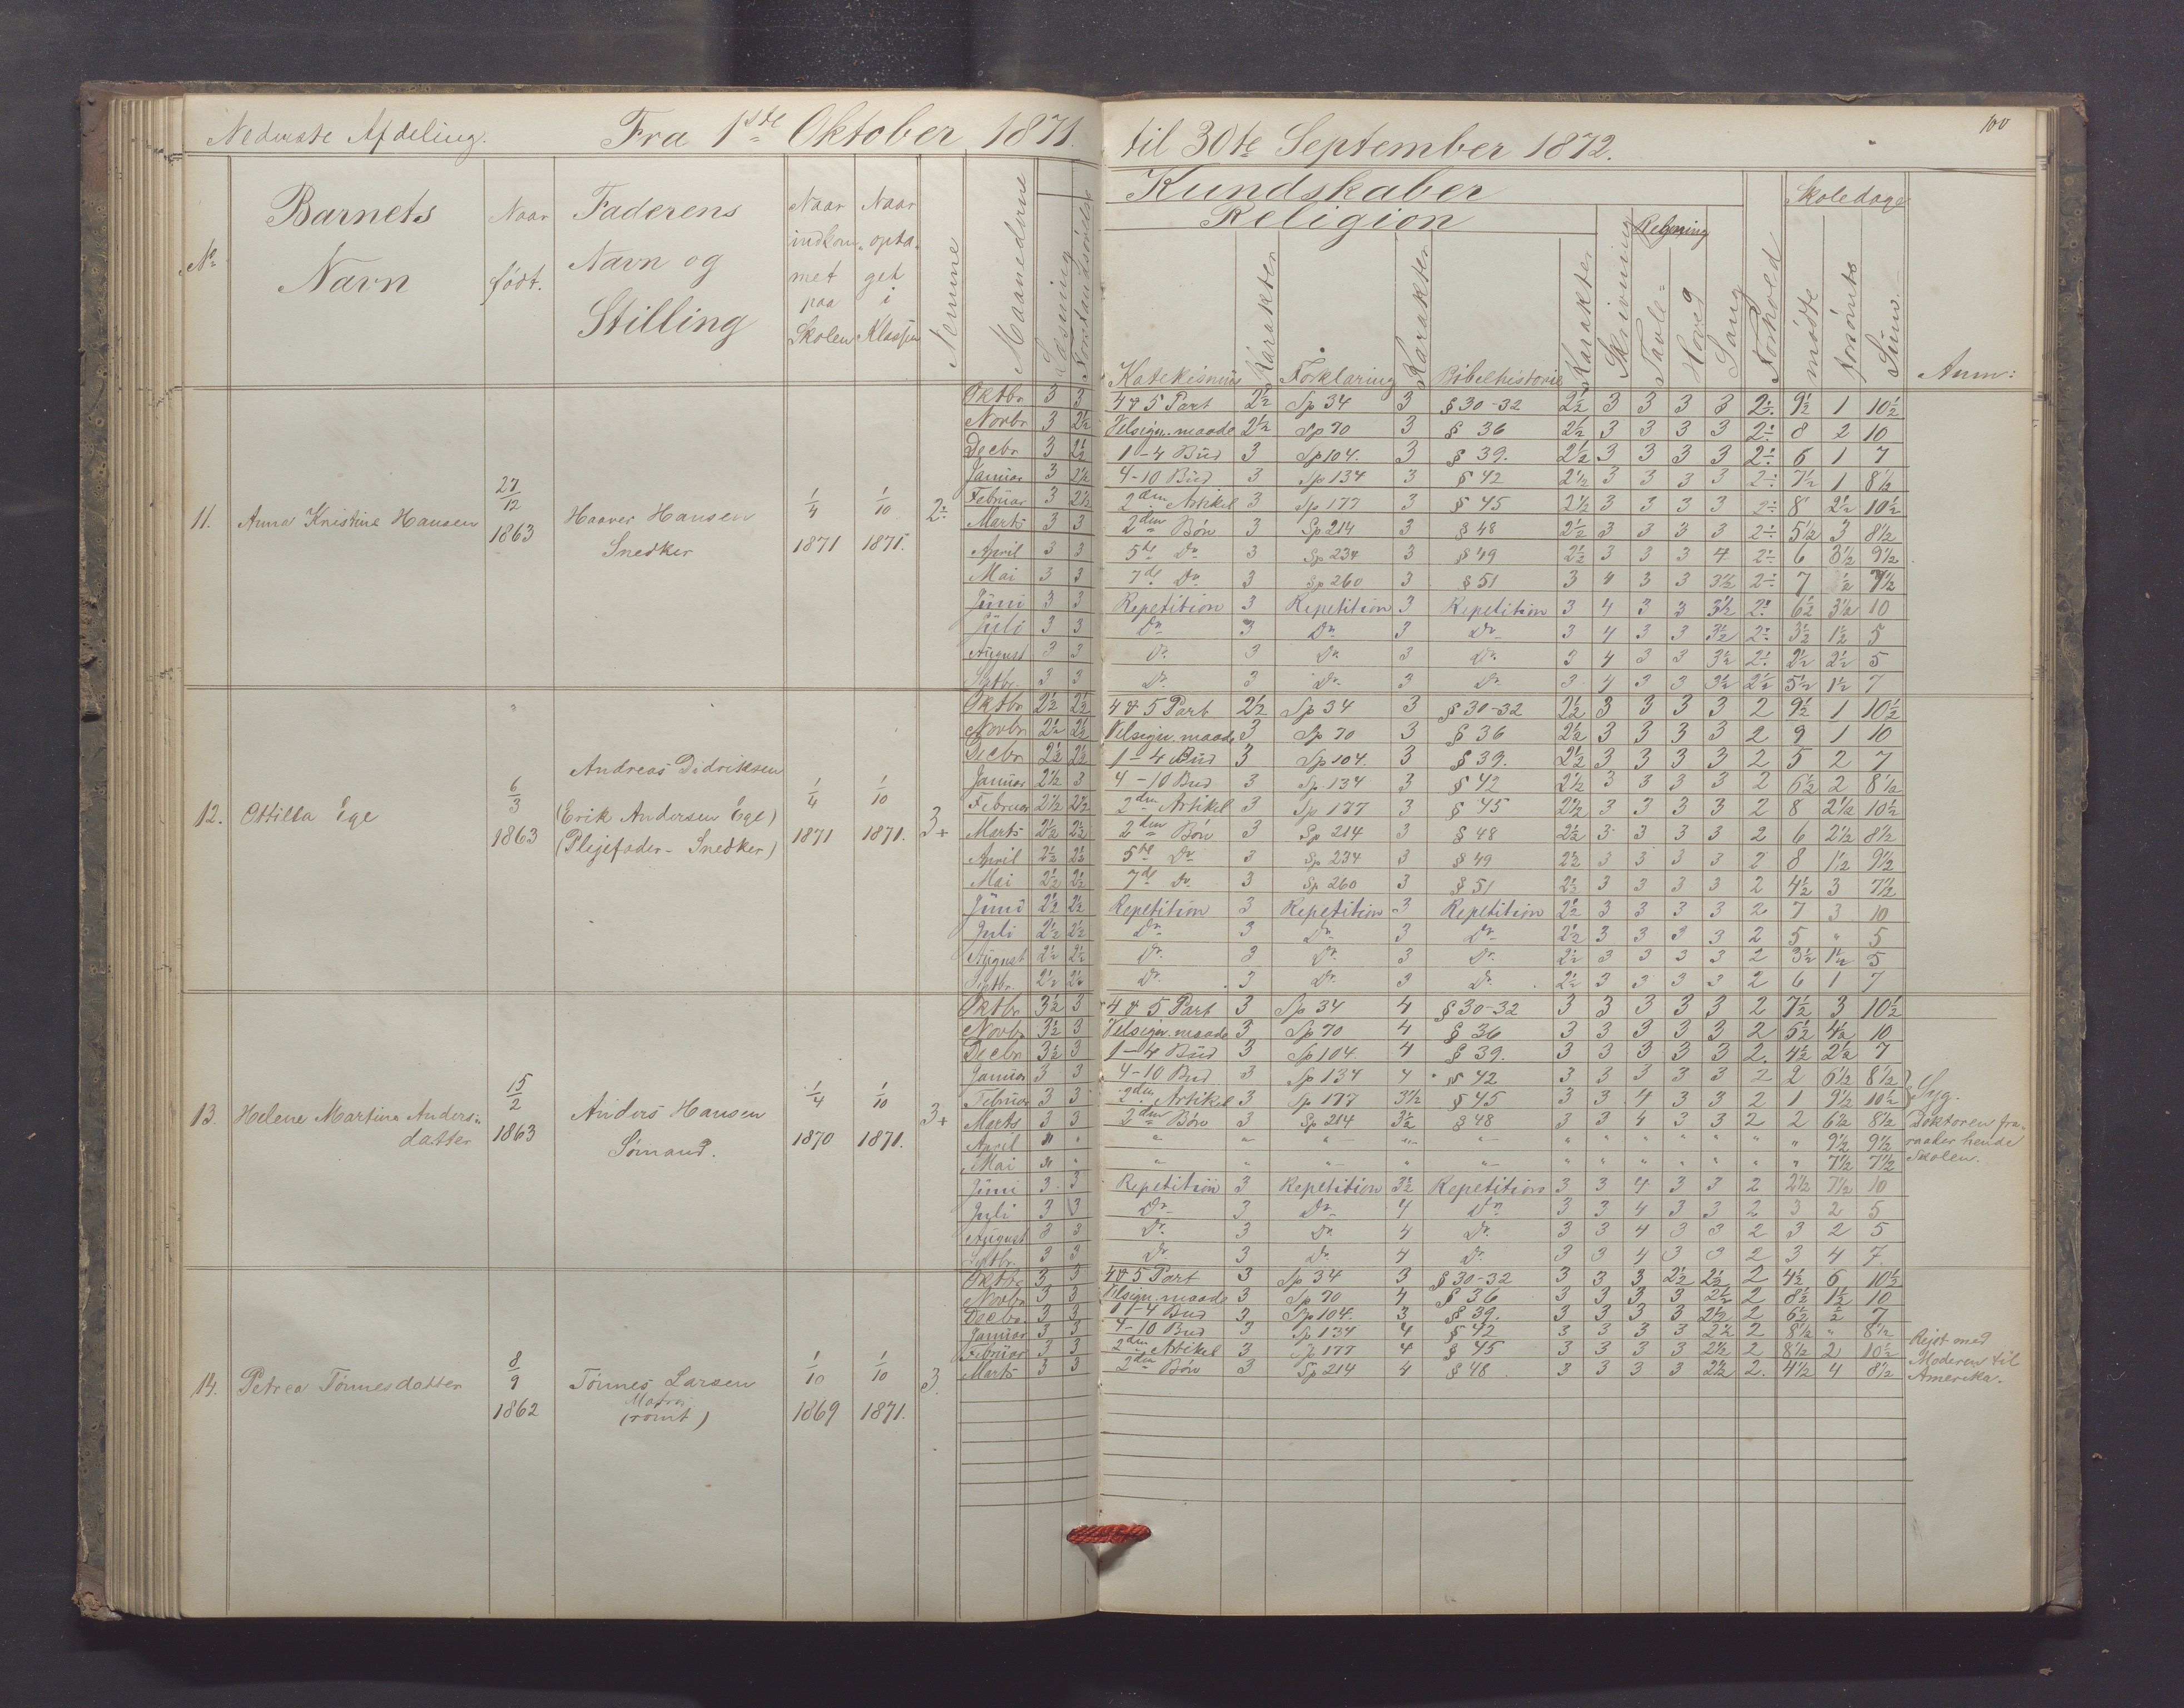 Nederste Afdeling. Fra 1ste Oktober 1871. til 30te September 1872. 100
No Barnets Navn Naar født. Faderens Navn og Stilling Naar indkommet paa Skolen Naar optaget i Klassen Nemme Maanederne Læsning Forstandsøvelse
Kundskaber Skoledage
Religion Regning
Katekismus Karakter Forklaring Karakter Bibelhistorie Karakter Skrivning Tavle= Hoved Sang Forhold mødte forsømte Sum. Anm:
11. Anna Kristine Hansen 27/12 1863 Haaver Hansen Snedker 1/4 1871 1/10 1871. 2÷
Oktbr 3 3 4 & 5 Part 2½ Sp 34 3 § 30-32 2½ 3 3 3 3 2÷ 9½ 1 10½
Novbr 3 2½ Velsign. maade 2½ Sp 70 3 § 36 2½ 3 3 3 3 2÷ 8 2 10
Decbr 3 2½ 1-4 Bud 3 Sp 104. 3 § 39. 2½ 3 3 3 3 2÷ 6 1 7
Januar 3 2½ 4-10 Bud 3 Sp 134 3 § 42 2½ 3 3 3 3 2÷ 7½ 1 8½
Februar 3 2½ 2den Artikel 3 Sp 177 3 § 45 2½ 3 3 3 3 2÷ 8 2½ 10½
Marts 3 3 2den Bøn 3 Sp 214 3 § 48 2½ 3 3 3 3 2÷ 5½ 3 8½
April 3 3 5te Do 3 Sp 234 3 § 49 2½ 3 3 3 4 2÷ 6 3½ 9½
Mai 3 3 7de Do 3 Sp 260 3 § 51 3 4 3 3 3½ 2÷ 7 ½ 7½
Juni 3 3 Repetition 3 Repetition 3 Repetition 3 4 3 3 3½ 2÷ 6½ 3½ 10
Juli 3 3 Do 3 Do 3 Do 3 4 3 3 3½ 2÷ 3½ 1½ 5
August 3 3 Do 3 Do 3 Do 3 4 3 3 3½ 2÷ 2½ 2½ 5
Septbr. 3 3 Do 3 Do 3 Do 3 4 3 3 3½ 2½ 5½ 1½ 7
12. Ottilla Ege 6/3 1863 Andreas Didriksen (Erik Andersen Ege) (Plejefader - Snedker) 1/4 1871 1/10 1871. 3+
Oktbr 2½ 2½ 4 & 5 Part 2½ Sp 34 3 § 30-32 2½ 3 3 3 3 2 9½ 1 10½
Novbr 2½ 2½ Velsign. maade 3 Sp 70 3 § 36 2½ 3 3 3 3 2 9 1 10
Decbr 2½ 2½ 1-4 Bud 3 Sp 104. 3 § 39. 2½ 3 3 3 3 2 5 2 7
Januar 2½ 3 4-10 Bud 3 Sp. 134 3 § 42 2½ 3 3 3 3 2 6½ 2 8½
Februar 2½ 2½ 2den Artikel 3 Sp 177 3 § 45 2½ 3 3 3 3 2 8 2½ 10½
Marts 2½ 2½ 2den Bøn 3 Sp 214 3 § 48 2½ 3 3 3 3 2 6 2½ 8½
April 2½ 2½ 5te Do 3 Sp. 234 3 § 49 2½ 3 3 3 3 2 8 1½ 9½
Mai 2½ 2½ 7de Do 3 Sp 260 3 § 51 2½ 3 3 3 3 2 4½ 3 7½
Juni 2½ 2½ Repetition 3 Repetition 3 Repetition 2½ 3 3 3 3 2 7 3 10
Juli 2½ 2½ Do 3 Do 3 Do 2½ 3 3 3 3 2 5 " 5
August 2½ 2½ Do 3 Do 3 Do 2½ 3 3 3 3 2 3½ 1½ 5
Septbr. 2½ 2½ Do 3 Do 3 Do 2½ 3 3 3 3 2 6 1 7
13. Helene Martine Andersdatter 15/2 1863 Anders Hansen Sømand. 1/4 1870 1/10 1871. 3+
Oktbr 3½ 3 4 & 5 Part 3 Sp 34 4 § 30-32 3 3 3 3 3 2 7½ 3 10½
Novbr 3½ 3 Velsign. maade 3 Sp 70 4 § 36 3 3 3 3 3 2 5½ 4½ 10
Decbr 3½ 3 1-4 Bud 3 Sp 104. 4 § 39. 3 3 3 3 3 2. 4½ 2½ 7
Januar 3 3 4-10 Bud 3 Sp 134 4 § 42 3 3 3 3 3 2 2 6½ 8½
Februar 3 3 2den Artikel 3 Sp 177 3½ § 45 3 3 4 3 3 2 1 9½ 10½ Syg.
Marts 3 3 2den Bøn 3 Sp 214 3½ § 48 3 3 4 3 3 2 2 6½ 8½ Doktoren fra-
April " " " " " " " " " " " " " " " 9½ 9½ raader hende
Mai " " " " " " " " " " " " " " " 7½ 7½ Skolen.
Juni 3 3 Repetition 3 Repetition 3½ Repetition 3 3 4 3 3 2 2½ 7½ 10
Juli 3 3 Do 3 Do 4 Do 3 3 4 3 3 2 3 2 5
August 3 3 Do 3 Do 4 Do 3 3 4 3 3 2 3 2 5
Septbr. 3 3 Do 3 Do 4 Do 3 3 4 3 3 2 3 4 7.
14. Petrea Tönnesdatter 8/9 1862 Tönnes Larsen Matros (rømt) 1/10 1869 1/10 1871. 3.
Oktbr 3 3 4 & 5 Part 3 Sp 34 3 § 30-32 3 3 3 2½ 2½ 2 4½ 6 10½
Novbr 3 3 Velsign. maade 3 Sp 70 4 § 36 3 3 3 3 2½ 2 8½ 1½ 10
Decbr. 3 3 1-4 Bud 3 Sp 104. 3 § 39. 3 3 3 3 2½ 2 6½ ½ 7
Januar 3 3 4-10 Bud 3 Sp 134 4 § 42 3 3 3 3 2½ 2 8½ " 8½ Rejst med
Februar 3 3 2den Artikel 3 Sp 177 4 § 45 3 3 3 3 2½ 2 8½ 2 10½ Moderen til
Marts 3 3 2den Bøn 3 Sp 214 4 § 48. 3 3 3 3 2½ 2. 4½ 4 8½ Amerika.